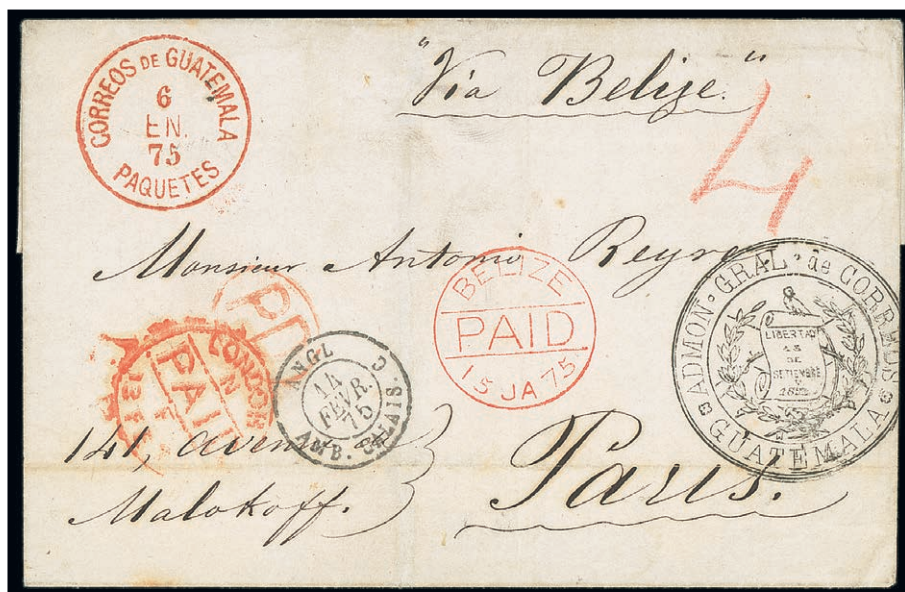 CORREOS DE GUATEMALA
6
EN.
75
PAQUETES
"Via Belize."
4
Monsieur Antonio Reyre
BELIZE
PAID
15 JA 75
ADMON. GRAL. de CORREOS
LIBERTAD
15
DE
SETIEMBRE
GUATEMALA
LONDON
PAID
ANGL
AMB. CALAIS C
14
FEVR.
75
141, avenue
Malakoff.
Paris.